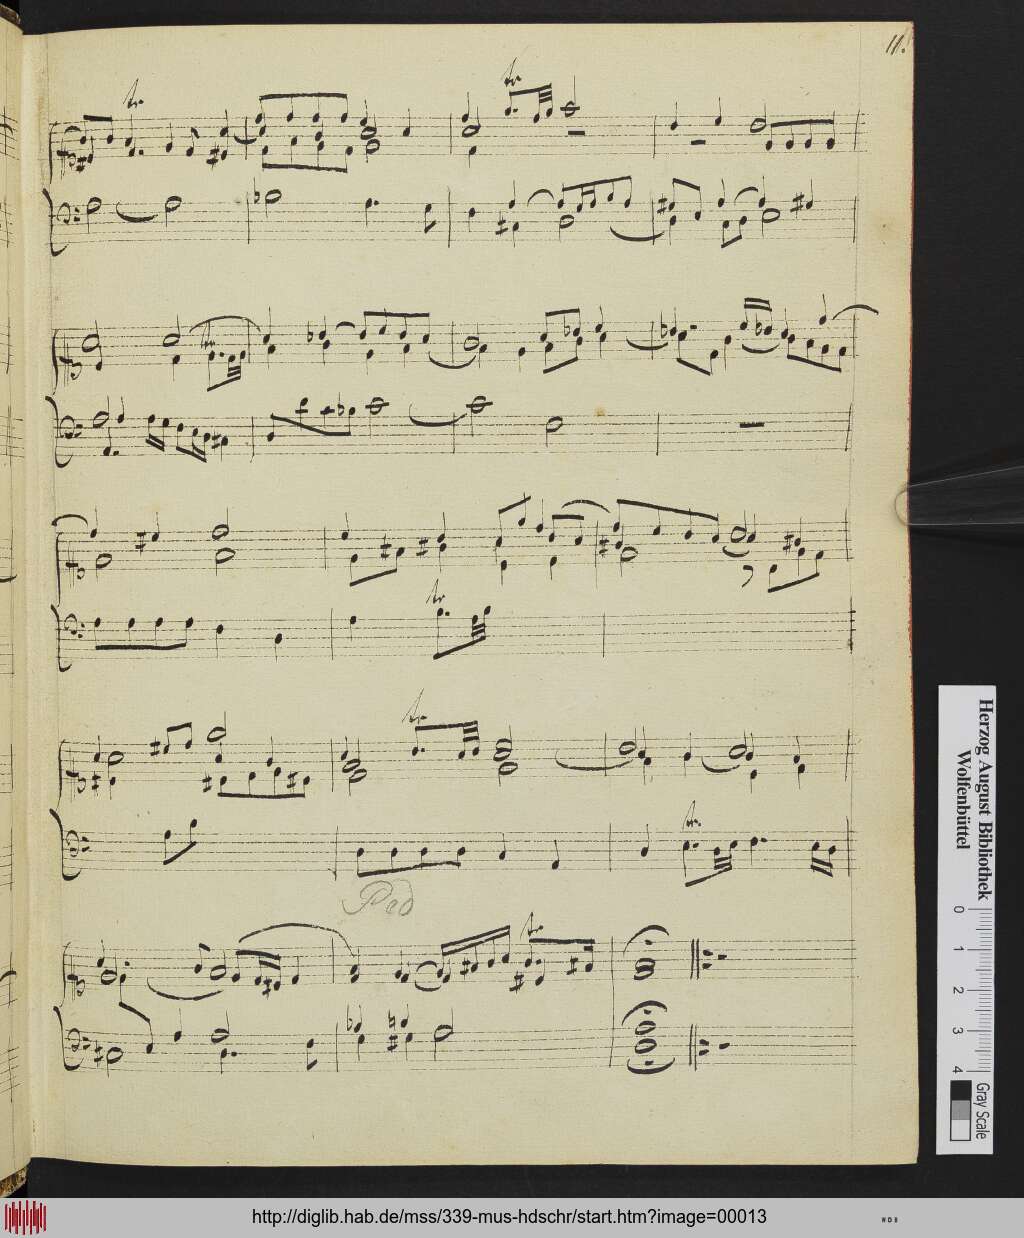 11.
tr
tr
tr
tr
tr
tr.
Ped
tr.
Herzog August Bibliothek
Wolfenbüttel
0 1 2 3 4
Gray Scale
http://diglib.hab.de/mss/339-mus-hdschr/start.htm?image=00013